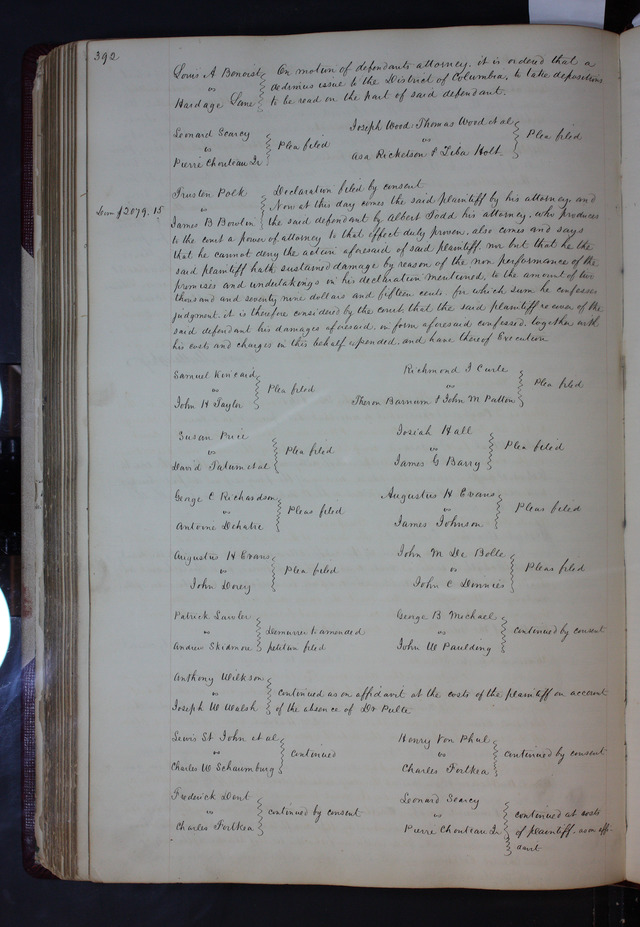 392
Louis A Benoist
vs
Hardage Lane
On motion of defendants attorney. it is ordered that a
dedimus issue to the District of Columbia, to take depositions
to be read on the part of said defendant.
Leonard Searcy
vs
Pierre Chouteau Jr
Plea filed
Joseph Wood Thomas Wood et al
vs
Asa Ricketson & Ziba Holt
Plea filed
Sum $2079.15
Trusten Polk
vs
James B Bowlin
Declaration filed by consent
Now at this day comes the said plaintiff by his attorney, and
the said defendant by Albert Todd his attorney, who produces
to the court a power of attorney to that effect duly proven. also comes and says
that he cannot deny the action aforesaid of said plaintiff nor but that he the
said plaintiff hath sustained damage by reason of the non performance of the
promises and undertakings in his declaration mentioned, to the amount of two
thousand and seventy nine dollars and fifteen cents. for which sum he confesses
judgment. it is therefore considered by the court that the said plaintiff recover of the
said defendant his damages aforesaid, in form aforesaid confessed, together with
his costs and charges in this behalf expended, and have thereof Execution
Samuel Kincaid
vs
John H Taylor
Plea filed
Richmond J Curle
vs
Theron Barnum & John M Patton
Plea filed
Susan Price
vs
David Tatum et al
Plea filed
Josiah Hall
vs
James G Barry
Plea filed
George C Richardson
vs
Antoine Dehatre
Pleas filed
Augustus H Evans
vs
James Johnson
Pleas filed
Augustus H Evans
vs
John Dorey
Plea filed
John M De Bolle
vs
John C Dennies
Pleas filed
Patrick Lawler
vs
Andrew Skidmore
Demurrer to amended
petition filed
George B Michael
vs
John W Paulding
continued by consent
Anthony Wilkson
vs
Joseph W Walsh
continued as on affidavit at the costs of the plaintiff on account
of the absence of Dr Pulte
Lewis St John et al
vs
Charles W Schaumburg
continued
Henry Von Phul
vs
Charles Fortkea
continued by consent
Frederick Dent
vs
Charles Fortkea
continued by consent
Leonard Searcy
vs
Pierre Chouteau Jr
continued at costs
of plaintiff. as on aff-
davit